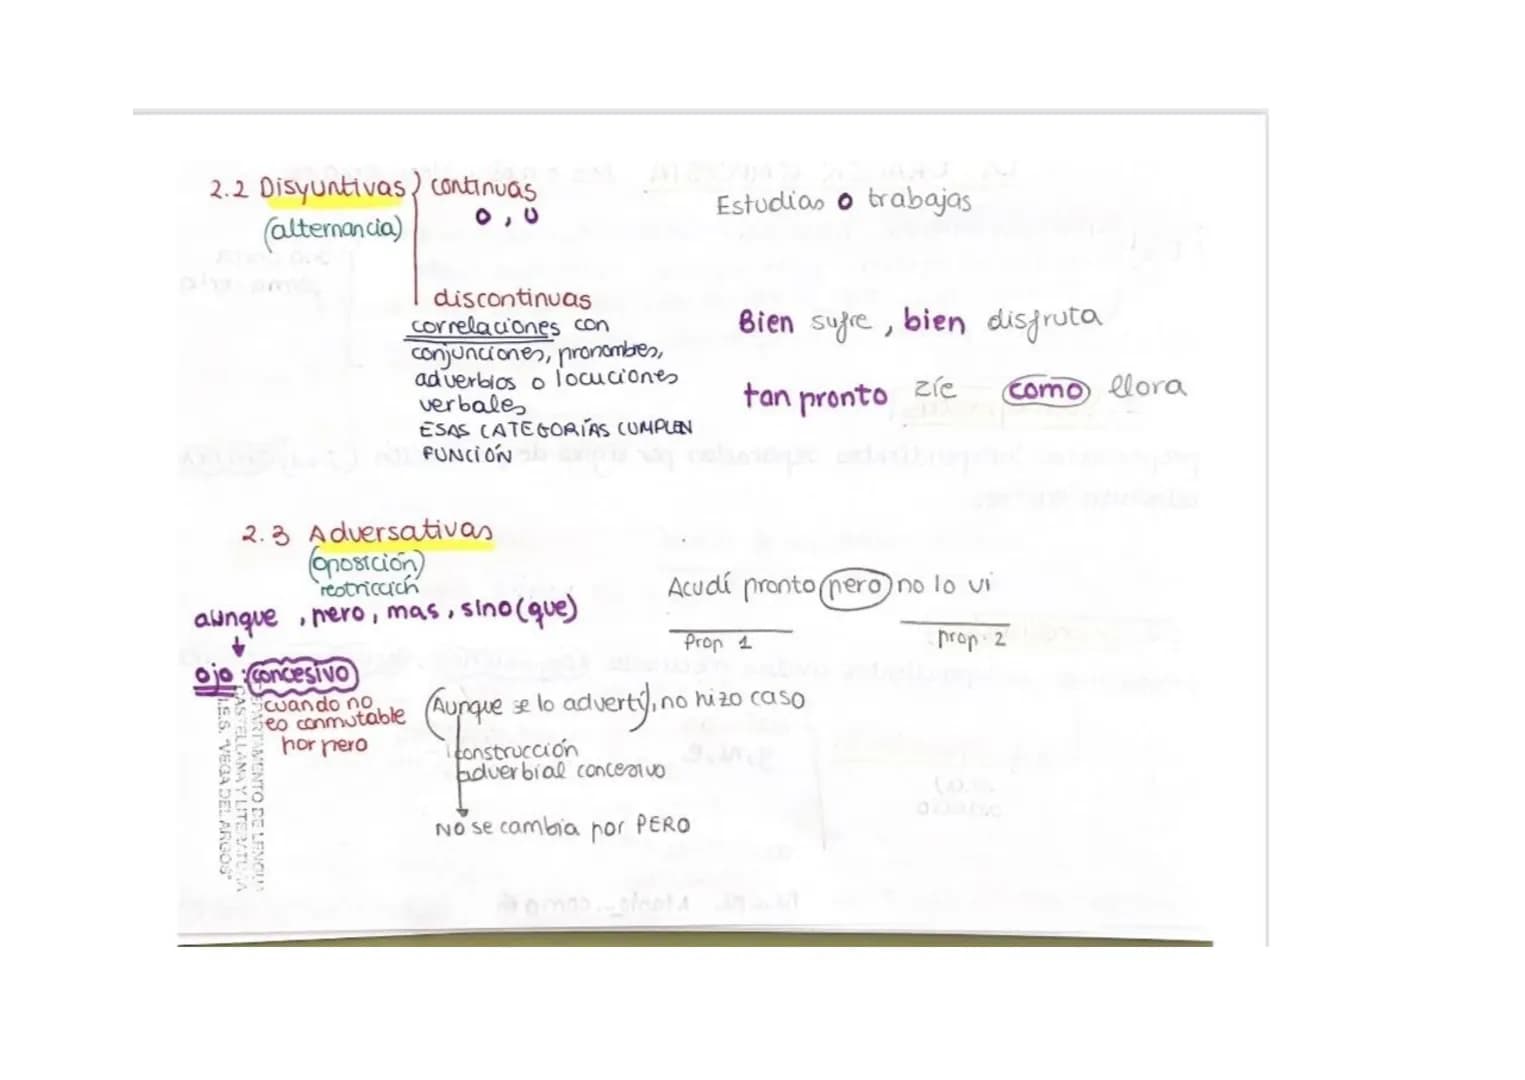 2.2 Disyuntivas continuas
(alternancia) o, u
Estudias o trabajas
discontinuas
correlaciones con
conjunciones, pronombres,
adverbios o locuciones
verbales
ESAS CATEGORÍAS CUMPLEN
FUNCIÓN
Bien sufre, bien disfruta
tan pronto ríe como llora
2.3 Adversativas
(oposición)
restricción
aunque, pero, mas, sino (que)
Acudí pronto pero no lo vi
Prop 1 prop. 2
ojo: concesivo
cuando no
es conmutable
por pero
(Aunque se lo advertí), no hizo caso
construcción
adverbial concesiva
NO se cambia por PERO
DEPARTAMENTO DE LENGUA
CASTELLANA Y LITERATURA
I.E.S. "VEGA DEL ARGOS"